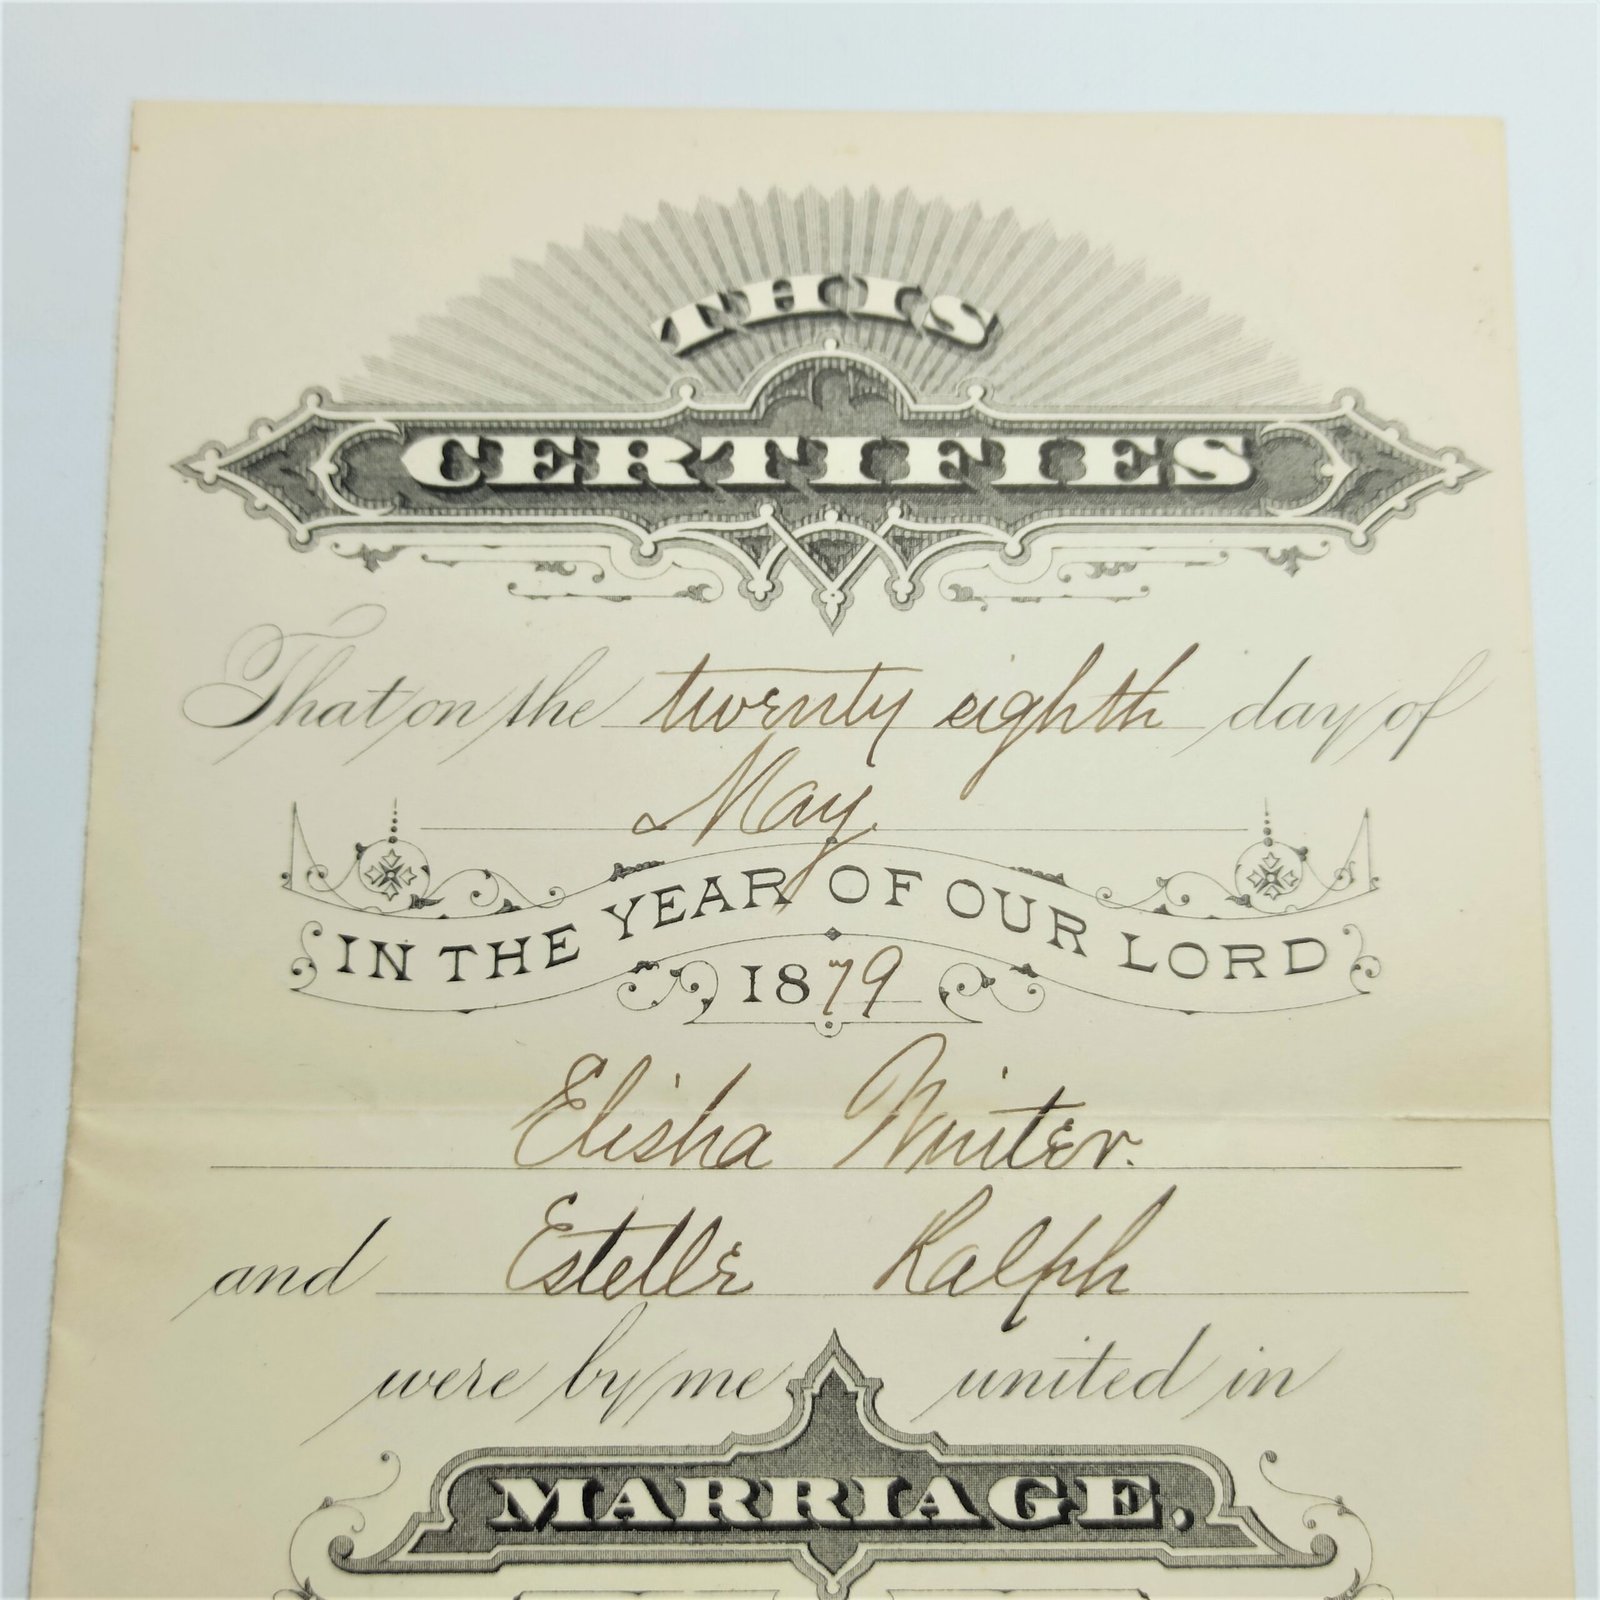 THIS
CERTIFIES
That on the twenty eighth day of
May.
IN THE YEAR OF OUR LORD
1879
Elisha Winter.
and Estelle Ralph
were by me united in
MARRIAGE,